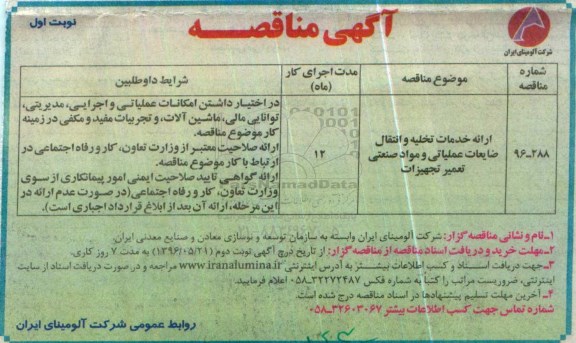 آگهی مناقصه
نوبت اول
شرکت آلومینای ایران
شماره مناقصه
موضوع مناقصه
مدت اجرای کار (ماه)
شرایط داوطلبین
۹۶-۲۸۸
ارائه خدمات تخلیه و انتقال
ضایعات عملیاتی و مواد صنعتی
تعمیر تجهیزات
۱۲
در اختیار داشتن امکانات عملیاتی و اجرایی، مدیریتی،
توانایی مالی، ماشین آلات، و تجربیات مفید و مکفی در زمینه
کار موضوع مناقصه.
ارائه صلاحیت معتبر از وزارت تعاون، کار و رفاه اجتماعی در
ارتباط با کار موضوع مناقصه.
ارائه گواهی تایید صلاحیت ایمنی امور پیمانکاری از سوی
وزارت تعاون، کار و رفاه اجتماعی (در صورت عدم ارائه در
این مرحله، ارائه آن بعد از ابلاغ قرارداد اجباری است).
۱ـ نام و نشانی مناقصه گزار: شرکت آلومینای ایران وابسته به سازمان توسعه و نوسازی معادن و صنایع معدنی ایران.
۲ـ مهلت خرید و دریافت اسناد مناقصه از مناقصه گزار: از تاریخ درج آگهی نوبت دوم (۱۳۹۶/۰۵/۲۱) به مدت ۷ روز کاری.
۳ـ جهت دریافت اسناد و کسب اطلاعات بیشتر به آدرس اینترنتی www.iranalumina.ir مراجعه و در صورت دریافت اسناد از سایت
اینترنتی، ضرورت مراتب را کتباً به شماره فکس ۳۲۲۷۲۴۸۷-۰۵۸ اعلام فرمایید.
۴ـ آخرین مهلت تسلیم پیشنهادها در اسناد مناقصه درج شده است.
شماره تماس جهت کسب اطلاعات بیشتر ۳۲۶۰۳۰۶۷-۰۵۸
روابط عمومی شرکت آلومینای ایران